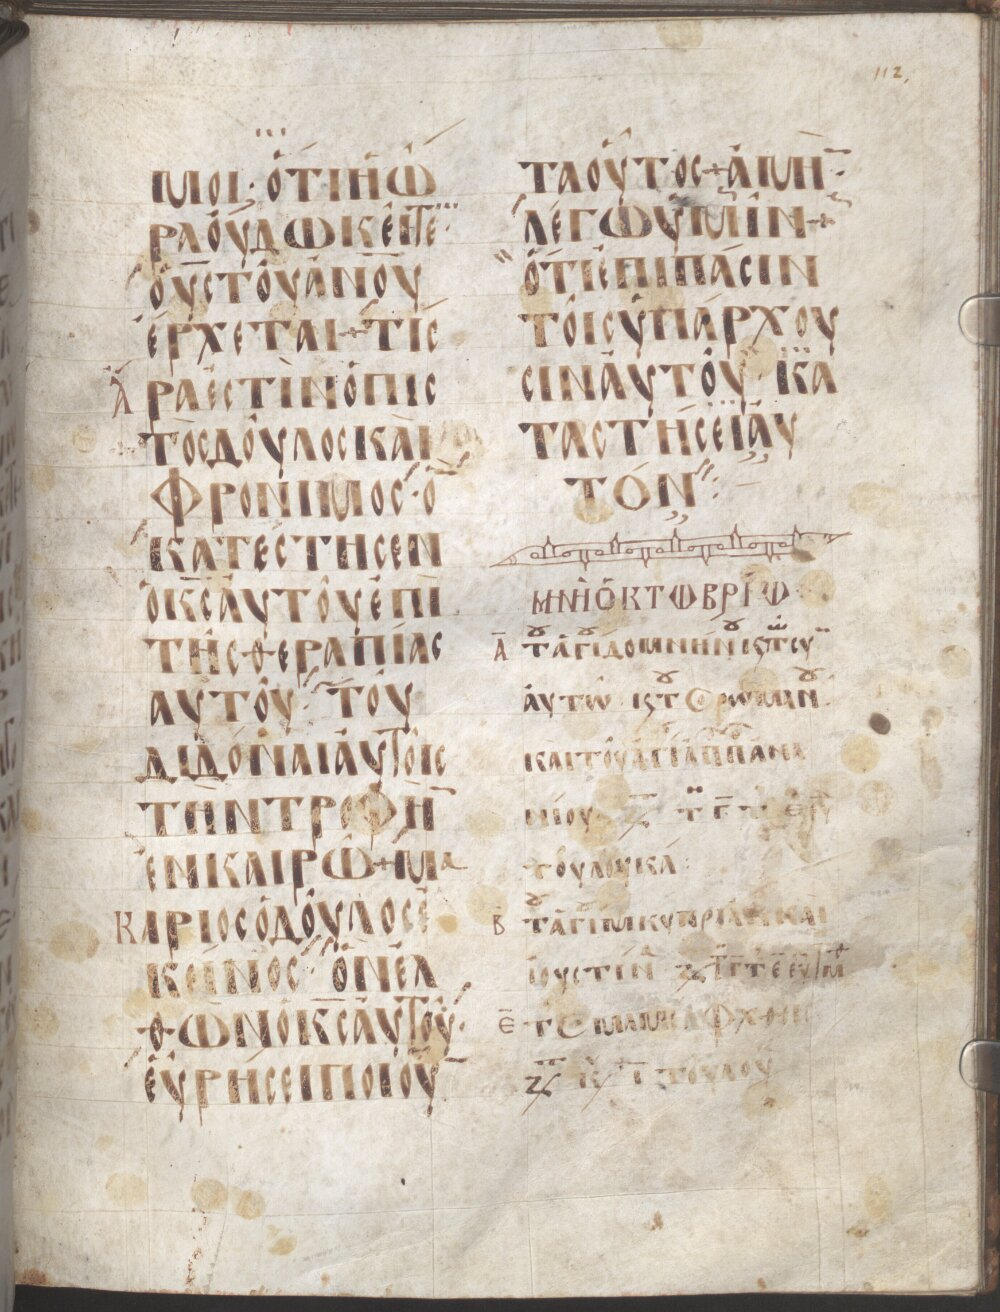 112,
ΜΟΙ· ὍΤΙ Ἡ Ὥ
ΡΑ ΟΥ ΔΟΚΕΙΤΕ·
Ὁ Υ̅Σ̅ ΤΟΥ ΑΝΟΥ
ΕΡΧΕΤΑΙ + ΤΙΣ
ΑΡΑ ΕΣΤΙΝ Ο ΠΙΣ
ΤΟΣ ΔΟΥΛΟΣ ΚΑΙ
ΦΡΟΝΙΜΟΣ· Ο
ΚΑΤΕΣΤΗΣΕΝ
Ο Κ̅Σ̅ ΑΥΤΟΥ ΕΠΙ
ΤΗΣ ΘΕΡΑΠΙΑΣ
ΑΥΤΟΥ· ΤΟΥ
ΔΙΔΟΝΑΙ ΑΥΤΟΙΣ
ΤΗΝ ΤΡΟΦΗ̅
ΕΝ ΚΑΙΡΩ + ΜΑ
ΚΑΡΙΟΣ Ο ΔΟΥΛΟΣ Ε
ΚΕΙΝΟΣ· ΟΝ ΕΛ
ΘΩΝ Ο Κ̅Σ̅ ΑΥΤΟΥ·
ΕΥΡΗΣΕΙ ΠΟΙΟΥ̅
ΤΑ ΟΥΤΟΣ + ΑΜΗ̅·
ΛΕΓΩ ΥΜΙΝ +
ΟΤΙ ΕΠΙ ΠΑΣΙΝ
ΤΟΙΣ ΥΠΑΡΧΟΥ
ΣΙΝ ΑΥΤΟΥ· ΚΑ
ΤΑΣΤΗΣΕΙ ΑΥ
ΤΟΝ
ΜΝΗ ΟΚΤΩΒΡΙΩ
Α̅
ΚΑΙ ΤΟΥ ΑΓΙ ΑΠ ΑΝΑ
ΝΙΟΥ
ΤΟΥ ΛΟΥΚΑ:
Β̅ Τ ΑΓΙ Μ ΚΥΠΡΙΑΝ ΚΑΙ
ΙΟΥΣΤΙΝ
Ε̅